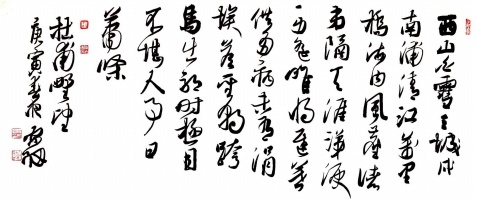 西山白雪三城戍
南浦清江萬里
橋海内風塵諸
弟隔天涯涕淚
一身遙唯將遲暮
供多病未有涓
埃答聖朝跨
馬出郊時極目
不堪人事日
蕭條
杜甫野望
庚寅